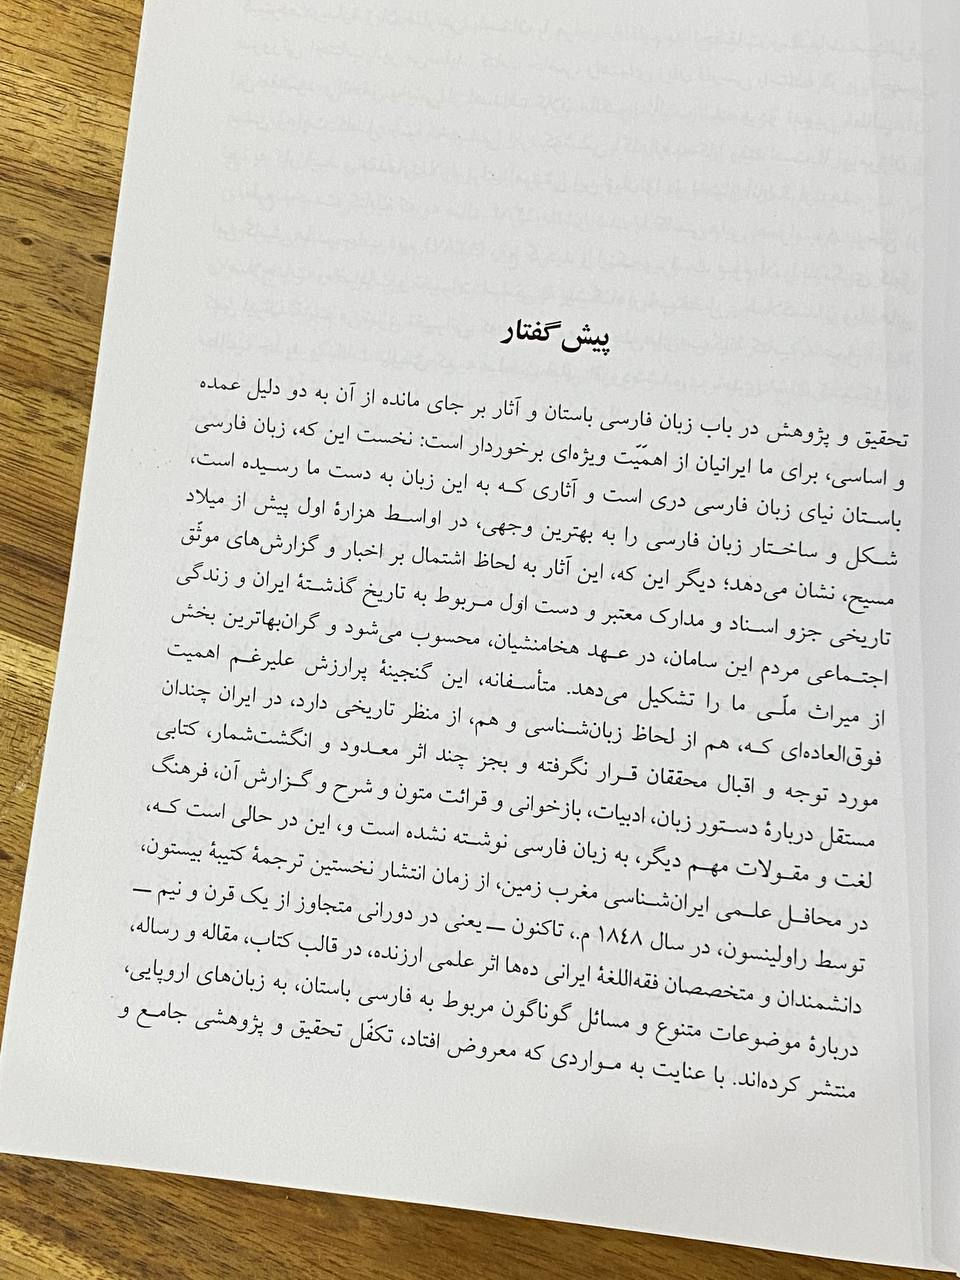 پیش گفتار
تحقیق و پژوهش در باب زبان فارسی باستان و آثار بر جای مانده از آن به دو دلیل عمده
و اساسی، برای ما ایرانیان از اهمّیّت ویژه‌ای برخوردار است: نخست این که، زبان فارسی
باستان نیای زبان فارسی دری است و آثاری که به این زبان به دست ما رسیده است،
شکل و ساختار زبان فارسی را به بهترین وجهی، در اواسط هزارهٔ اول پیش از میلاد
مسیح، نشان می‌دهد؛ دیگر این که، این آثار به لحاظ اشتمال بر اخبار و گزارش‌های موثّق
تاریخی جزو اسناد و مدارک معتبر و دست اول مربوط به تاریخ گذشتهٔ ایران و زندگی
اجتماعی مردم این سامان، در عهد هخامنشیان، محسوب می‌شود و گران‌بهاترین بخش
از میراث ملّی ما را تشکیل می‌دهد. متأسفانه، این گنجینهٔ پرارزش علیرغم اهمیت
فوق‌العاده‌ای که، هم از لحاظ زبان‌شناسی و هم، از منظر تاریخی دارد، در ایران چندان
مورد توجه و اقبال محققان قرار نگرفته و بجز چند اثر معدود و انگشت‌شمار، کتابی
مستقل دربارهٔ دستور زبان، ادبیات، بازخوانی و قرائت متون و شرح و گزارش آن، فرهنگ
لغت و مقولات مهم دیگر، به زبان فارسی نوشته نشده است و، این در حالی است که،
در محافل علمی ایران‌شناسی مغرب زمین، از زمان انتشار نخستین ترجمهٔ کتیبهٔ بیستون،
توسط راولینسون، در سال ١٨٤٨ م.، تاکنون ـــ یعنی در دورانی متجاوز از یک قرن و نیم ـــ
دانشمندان و متخصصان فقه‌اللغهٔ ایرانی ده‌ها اثر علمی ارزنده، در قالب کتاب، مقاله و رساله،
دربارهٔ موضوعات متنوع و مسائل گوناگون مربوط به فارسی باستان، به زبان‌های اروپایی،
منتشر کرده‌اند. با عنایت به مواردی که معروض افتاد، تکفّل تحقیق و پژوهشی جامع و